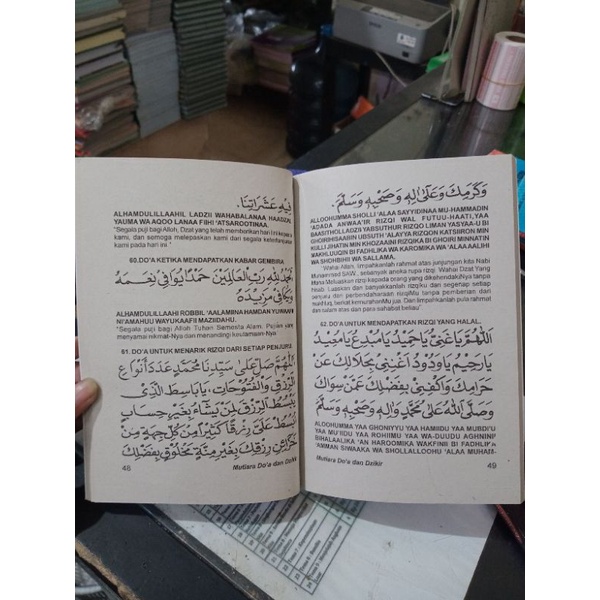 فِيْهِ عَثَرَاتِنَا.
ALHAMDULILLAAHIL LADZII WAHABALANAA HAADZAL
YAUMA WA AQOO LANAA FIIHI 'ATSAROOTINAA.
"Segala puji bagi Alloh, Dzat yang telah memberikan hari ini kepada
kami, dan semoga melepaskan kami dari segala keterlanjuran
kami pada hari ini."
60.DO'A KETIKA MENDAPATKAN KABAR GEMBIRA
اَلْحَمْدُ لِلّٰهِ رَبِّ الْعَالَمِيْنَ حَمْدًا يُوَافِيْ نِعَمَهُ
وَيُكَافِيْ مَزِيْدَهُ
ALHAMDULILLAAHI ROBBIL 'AALAMIINA HAMDAN YUWAAFII
NI'AMAHUU WAYUKAAFII MAZIIDAHU.
"Segala puji bagi Alloh Tuhan Semesta Alam. Pujian yang
menyamai nikmat-Nya dan menandingi keutamaan-Nya
61. DO'A UNTUK MENARIK RIZQI DARI SETIAP PENJURU
اَللّٰهُمَّ صَلِّ عَلٰى سَيِّدِنَا مُحَمَّدٍ عَدَدَ أَنْوَاعِ
الرِّزْقِ وَالْفُتُوْحَاتِ، يَا بَاسِطَ الَّذِيْ
يَبْسُطُ الرِّزْقَ لِمَنْ يَشَاءُ بِغَيْرِ حِسَابٍ
اُبْسُطْ عَلَيَّ رِزْقًا كَثِيْرًا مِنْ كُلِّ جِهَةٍ مِنْ
خَزَائِنِ رِزْقِكَ بِغَيْرِ مِنَّةِ مَخْلُوْقٍ بِفَضْلِكَ
48
Mutiara Do'a dan Dzikir
وَكَرَمِكَ وَعَلٰى اٰلِهِ وَصَحْبِهِ وَسَلِّمْ.
ALLOOHUMMA SHOLLI 'ALAA SAYYIDINAA MU-HAMMADIN
'ADADA ANWAA'IR RIZQI WAL FUTUU-HAATI,YAA
BAASITHOLLADZII YABSUTHUR RIZQO LIMAN YASYAA-U BI
GHOIRIHISAABIN UBSUTH 'ALAYYA RIZQON KATSIIRON MIN
KULLI JIHATIN MIN KHOZAAINI RIZQIKA BI GHOIRI MINNATIN
WAKHLUUQIN BI FADHLIKA WA KAROMIKA WA 'ALAAAALIHI
WA SHOHBIHI WA SALLAMA.
"Wahai Allah, limpahkanlah rahmat atas junjungan kita Nabi
Muhammad SAW., sebanyak aneka rupa rizqi. Wahai Dzat Yang
Maha Meluaskan rizqi kepada orang yang dikehendakiNya tanpa
hisab. Luaskan dan banyakkanlah rizqiku dari segenap setiap
penjuru dari perbendaharaan rizqiMu tanpa pemberian dari
makhluq, berkat kemurahanMu jua. Dan limpahkanlah pula rahmat
dan salam atas para keluarga dan para sahabat beliau."
62. DO'A UNTUK MENDAPATKAN RIZQI YANG HALAL.
اَللّٰهُمَّ يَا غَنِيُّ يَا حَمِيْدُ يَا مُبْدِئُ يَا مُعِيْدُ
يَا رَحِيْمُ يَا وَدُوْدُ أَغْنِنِيْ بِحَلَالِكَ عَنْ
حَرَامِكَ وَاكْفِنِيْ بِفَضْلِكَ عَمَّنْ سِوَاكَ
وَصَلَّى اللّٰهُ عَلٰى مُحَمَّدٍ وَاٰلِهِ وَصَحْبِهِ وَسَلَّمَ
ALOOHUMMA YAA GHONIYYU YAA HAMIIDU YAA MUBDI'U
YAA MU'IIDU YAA ROHIIMU YAA WA-DUUDU AGHNINI'
BIHALAALIKA 'AN HAROOMIKA WAKFINII BI FADHLIKA
'AMMAN SIWAAKA WA SHOLLALLOOHU 'ALAA MUHAM-
Mutiara Do'a dan Dzikir
49